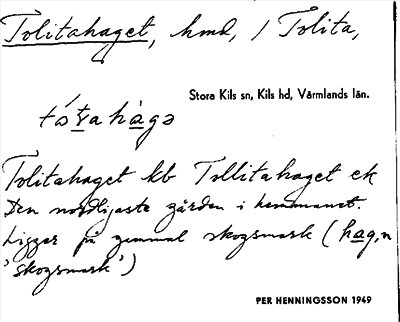 Tolitahaget, hmd, / Tolita,
Stora Kils sn, Kils hd, Värmlands län.
tó̱ṟahàgə
Tolitahaget kb Tollitahaget ek
Den nordligaste gården i hemmanet.
Ligger på gammal skogsmark (hag,n
'skogsmark')
PER HENNINGSSON 1949